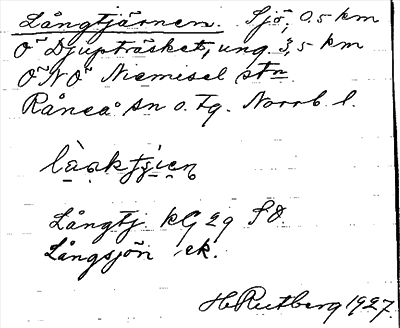 Långtjärnen. Sjö, 0,5 km
Ö Djupträsket, ung. 3,5 km
ÖNÖ Niemisel stn
Råneå sn o. Tg. Norrb. l.
Långtj. kG 29 SO
Långsjön ek.
H Rutberg 1927.